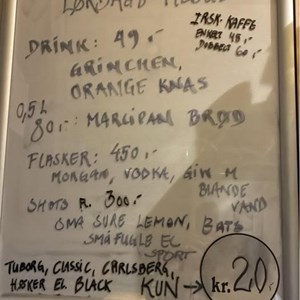 LØRDAGS
IRSK KAFFE
ENKELT 45,-
DOBBELT 60,-
DRINK: 49,-
GRINCHEN,
ORANGE KNAS
0,5L
80,-: MARCIPAN BRØD
FLASKER: 450,-
MORGAN, VODKA, GIN M
BLANDE
VAND
SHOTS 300,-
SMÅ SURE LEMON, BATS
SMÅ FUGLE EL
SPORT
TUBORG, CLASSIC, CARLSBERG,
HØKER EL BLACK KUN → kr. 20,-